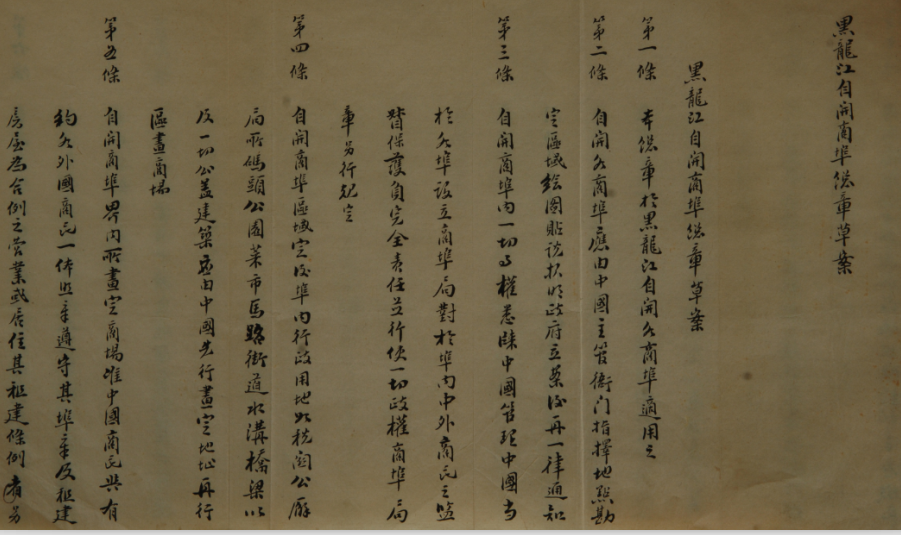 黑龍江自開商埠總章草案
黑龍江自開商埠總章草案
第一條 本總章於黑龍江自開各商埠適用之
第二條 自開各商埠應由中國主管衙門指擇地點勘
定區域繪圖貼說報明政府立案後再一律通知
第三條 自開商埠內一切事權悉隸中國管理中國當
於各埠設立商埠局對於埠內中外商民之監
督保護負完全責任並行使一切政權商埠局
章另行規定
第四條 自開商埠區域定後埠內行政用地如稅關公廨
局所碼頭公園菜市馬路街道水溝橋梁以
及一切公益建築應由中國先行畫定地址再行
區畫商場
第五條 自開商埠界內所畫定商場唯中國商民與有
約各外國商民一体照章遵守其埠章及租建
房屋為合例之營業或居住其租建條例者另